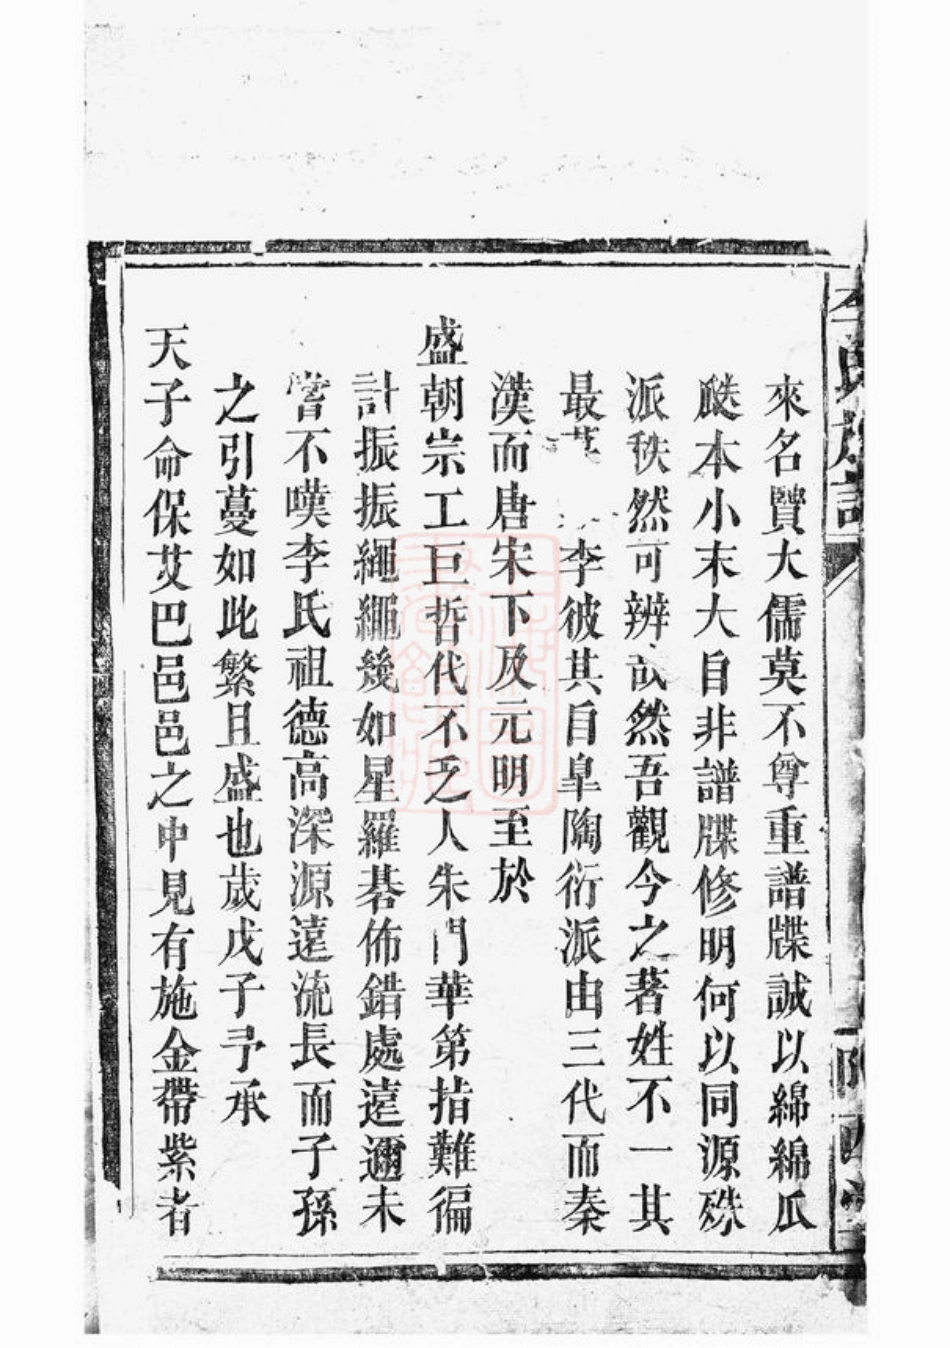 李氏族譜
來名賢大儒莫不尊重譜牒誠以綿綿瓜
瓞本小末大自非譜牒修明何以同源殊
派秩然可辨哉然吾觀今之著姓不一其
最 李彼其自臯陶衍派由三代而秦
漢而唐宋下及元明至於
盛朝宗工巨哲代不乏人朱門華第指難徧
計振振繩繩幾如星羅碁佈錯處遠邇未
嘗不嘆李氏祖德高深源遠流長而子孫
之引蔓如此繁且盛也歲戊子予承
天子命保艾巴邑邑之中見有施金帶紫者